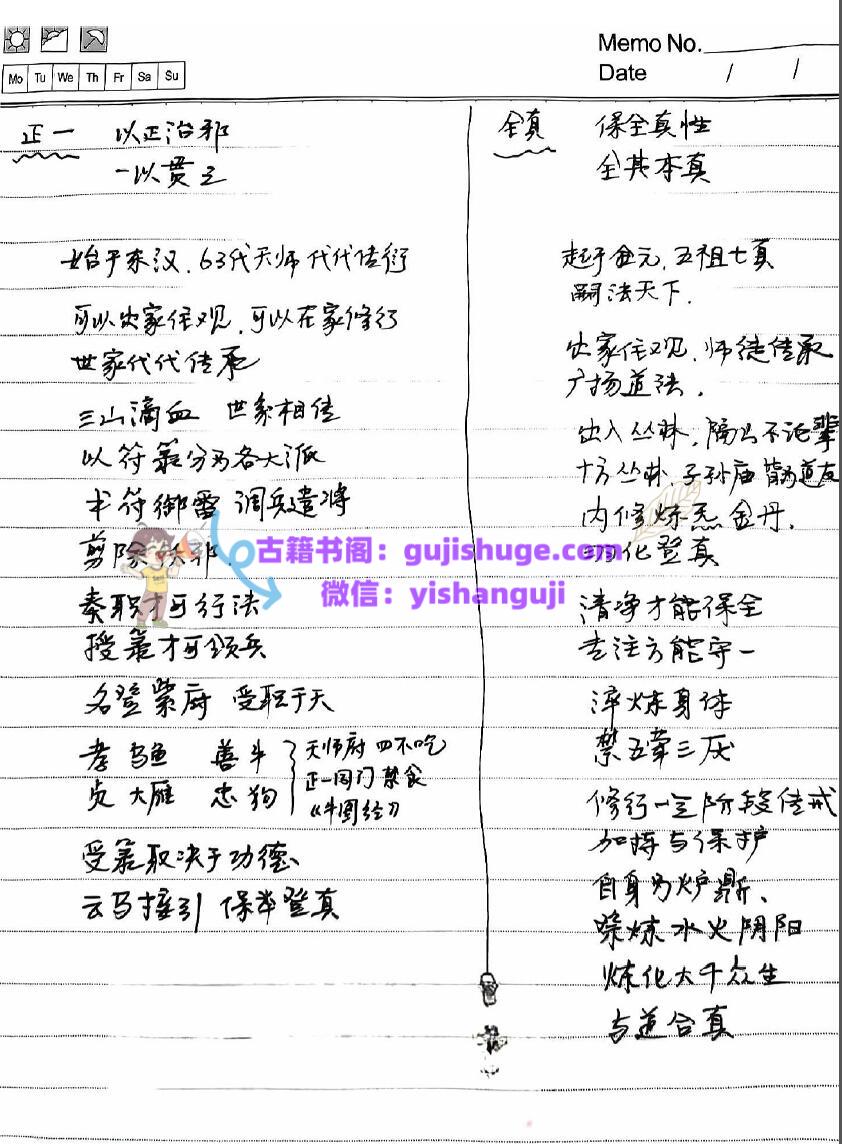 Memo No.
Date / /
Mo Tu We Th Fr Sa Su
正一 以正治邪
一以贯之
始于东汉.63代天师代代传衍
可以出家住观.可以在家修行
世家代代传承
三山滴血 世家相传
以符箓分为各大派
书符御雷 调兵遣将
剪除妖邪.
奏职才可行法
授箓才可领兵
名登紫府 受职于天
孝乌鱼 善牛
贞大雁 忠狗
天师府四不吃
正一同门禁食
《牛图经》
受箓取决于功德
云马接引 保举登真
全真 保全真性
全其本真
起于金元.五祖七真
嗣法天下.
出家住观.师徒传承
广扬道法.
出入丛林.隔山不论辈
十方丛林.子孙庙皆为道友
内修炼炁金丹.
羽化登真
清净才能保全
专注方能守一
淬炼身体
禁五荤三厌
修行一定阶段传戒
加持与保护
自身为炉鼎.
炼水火阴阳
炼化大千众生
与道合真
古籍书阁：gujishuge.com
微信：yishanguji